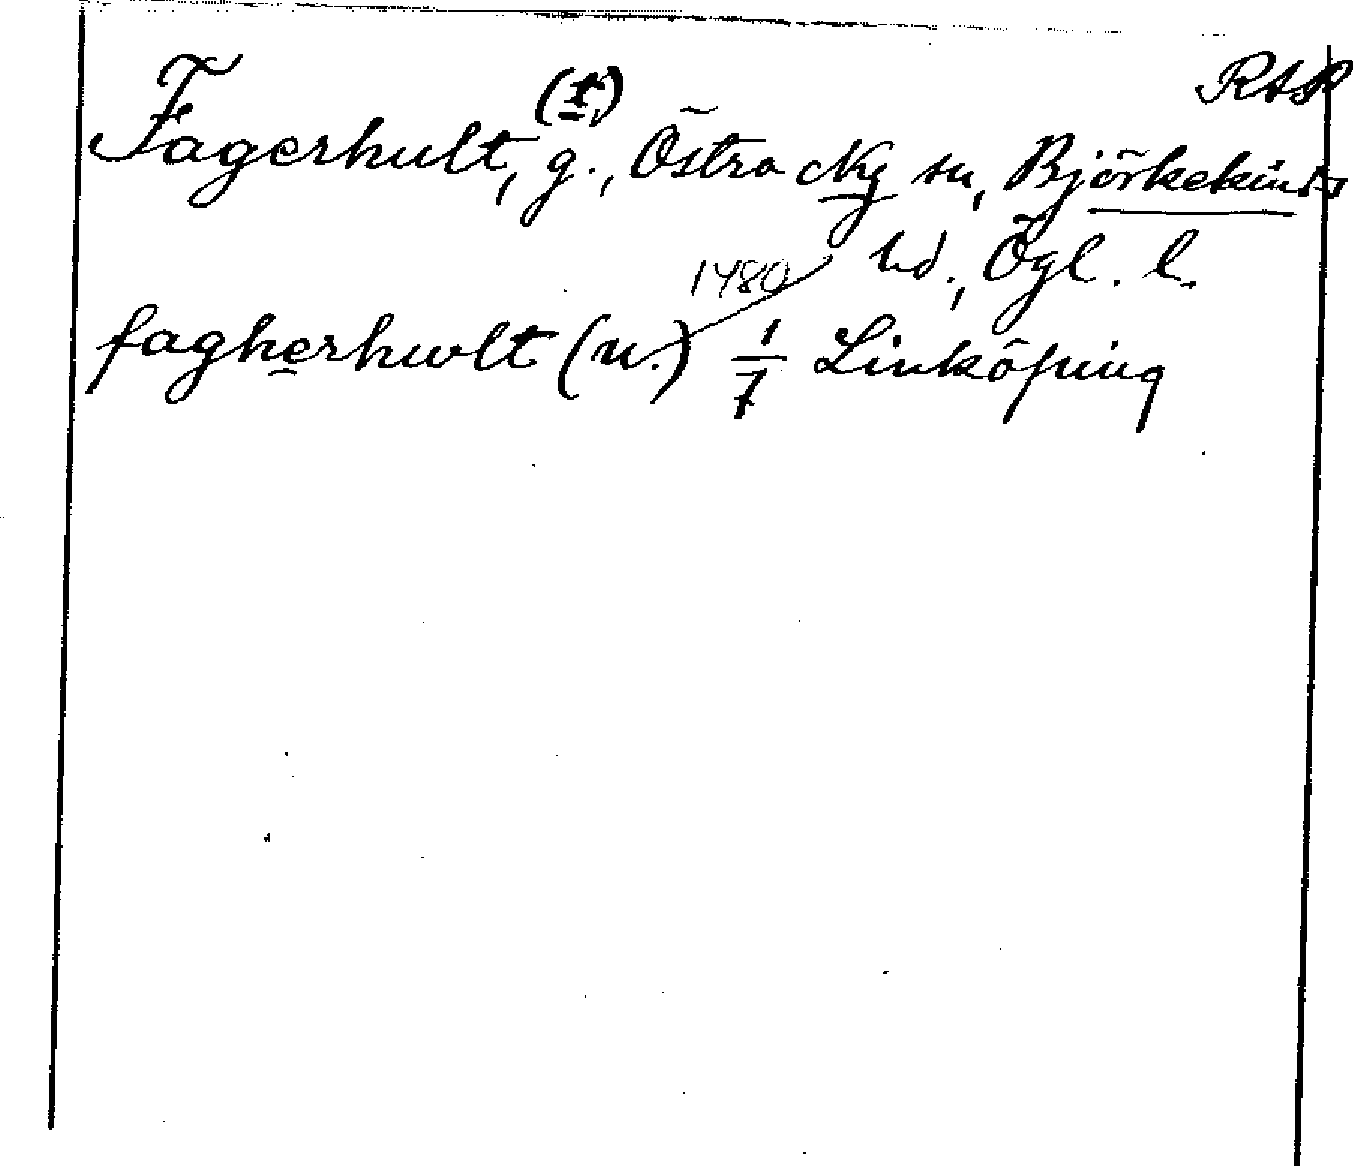 RAP
Fagerhult, (r) g., Östra Ny sn, Björkekinds
hd., Ögl. l.
1480
fagherhwlt (u.) 1/7 Linköping